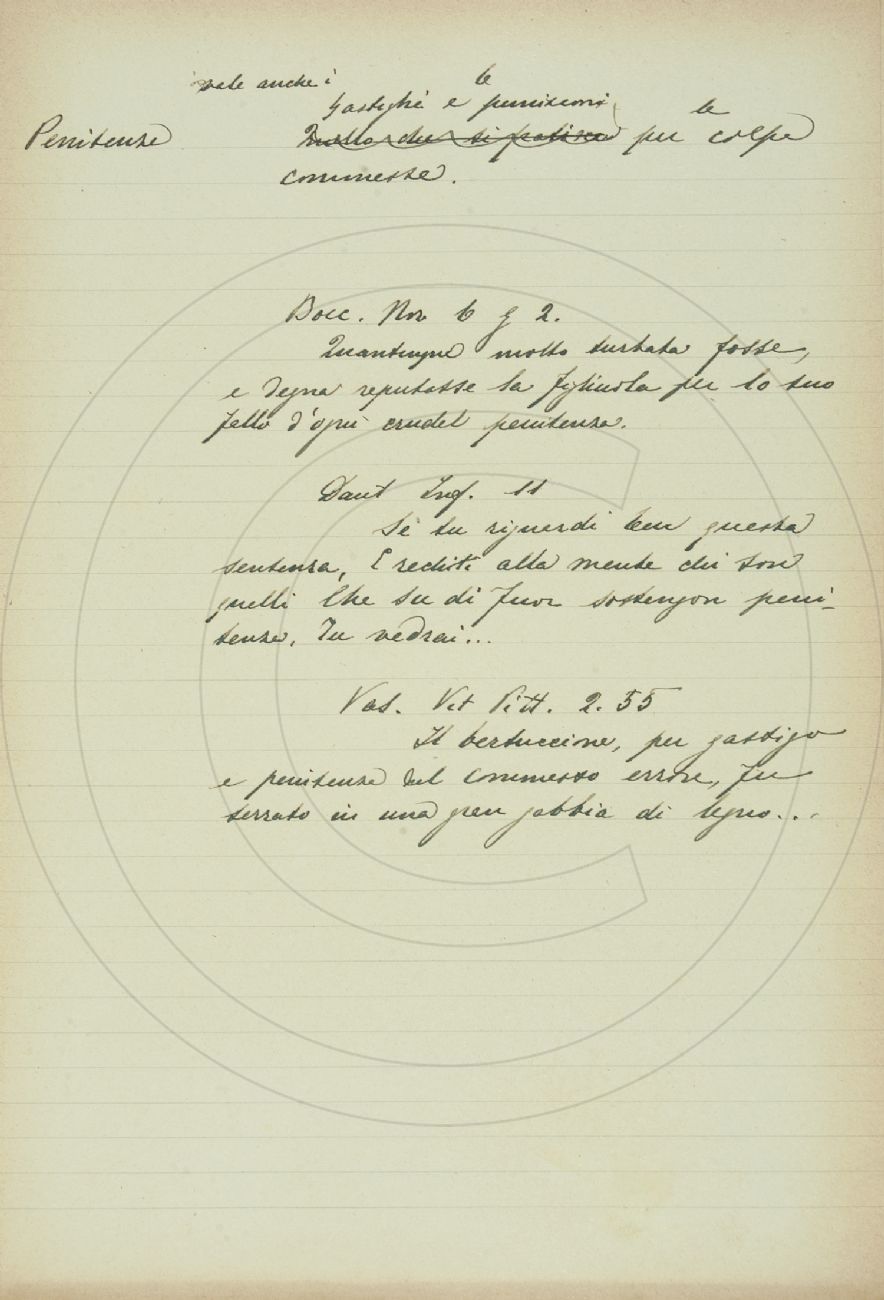 vale anche i le
Gastighi e punizioni le
Penitenze Quello che si patisce per colpe
commesse.
Bocc. Nov 6 g 2.
Quantunque molto turbata fosse,
e degna reputasse la figliuola per lo suo
fallo d'ogni crudel penitenza.
Dant Inf. 11
Se tu riguardi ben questa
sentenza, E rechiti alla mente chi son
quelli Che su di fuor sostengon peni-
tenza, Tu vedrai...
Vas. Vit Pitt. 2. 55
Il bertuccione, per gastigo
e penitenza del commesso errore, fu
serrato in una gran gabbia di legno...